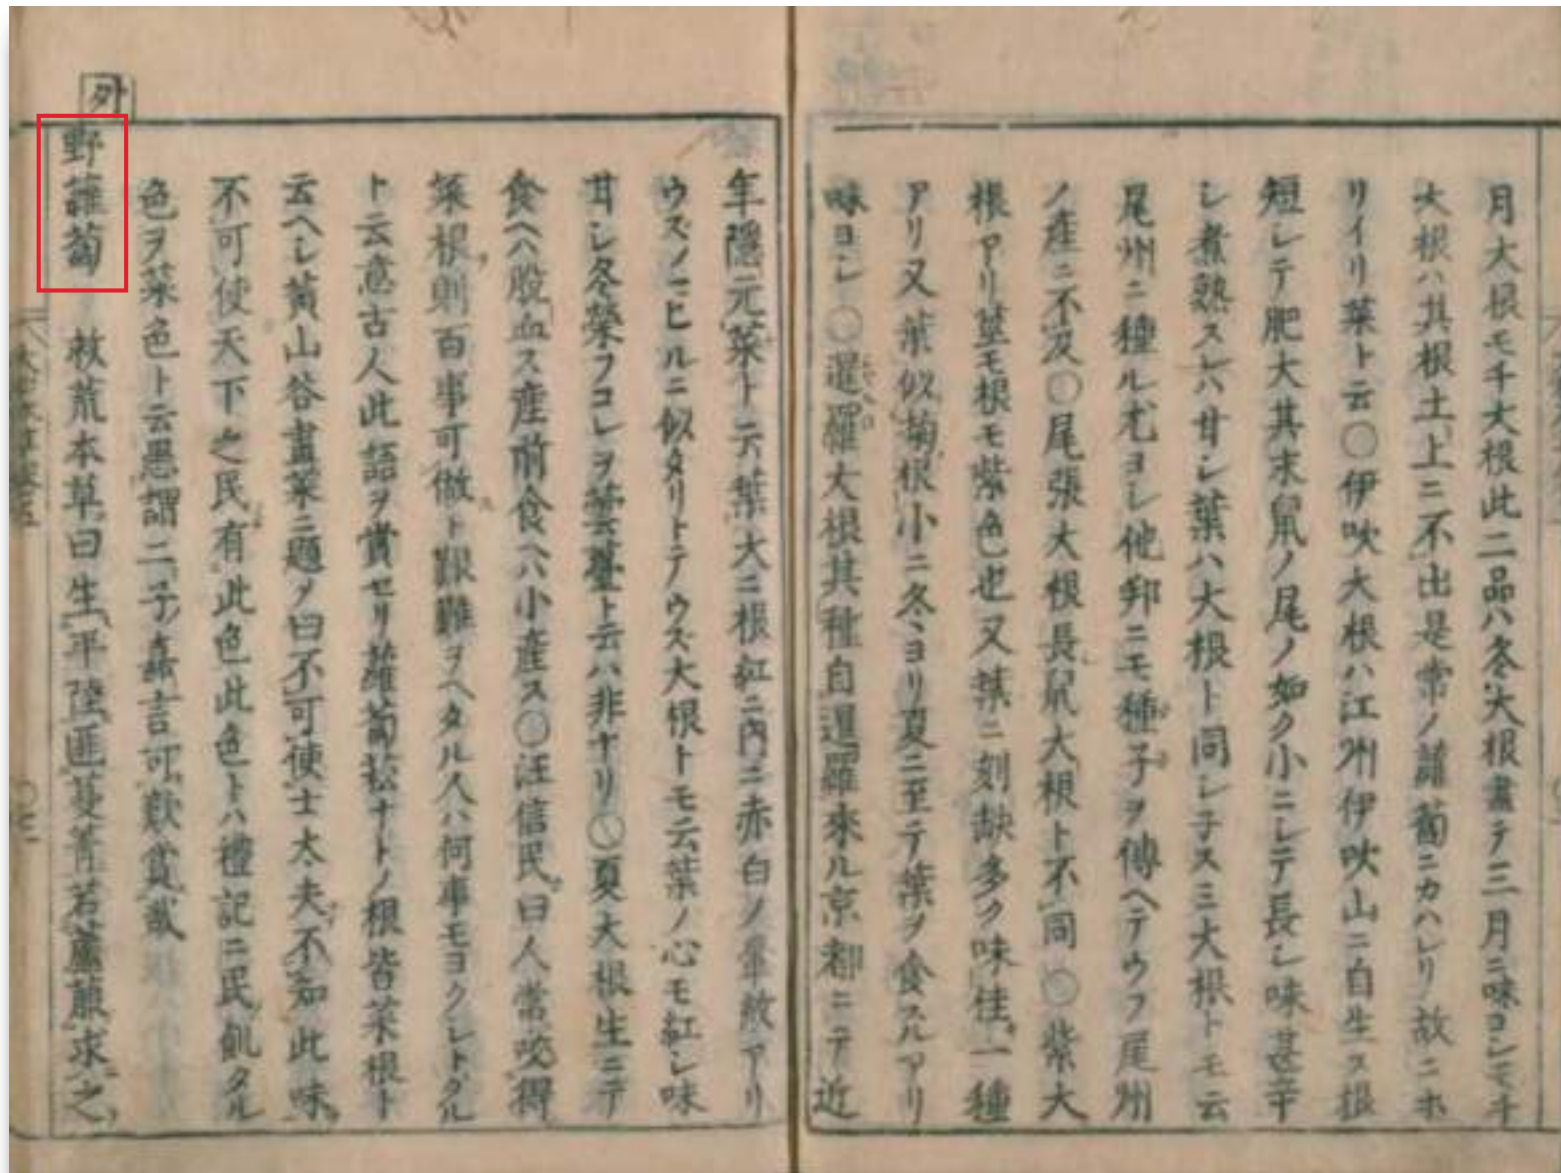 月大根モ千大根此二品ハ冬大根盡テ三月ニ味ヨシモチ
大根ハ其根土上ニ不出是常ノ蘿蔔ニカハレリ故ニホ
リイリ菜ト云〇伊吹大根ハ江州伊吹山ニ自生ス根
短シテ肥大其末鼠ノ尾ノ如ク小ニシテ長シ味甚辛
シ煮熟スレハ甘シ葉ハ大根ト同シ子ス三大根トモ云
尾州ニ種ル尤ヨシ他邦ニモ種子ヲ傳ヘテウフ尾州
ノ産ニ不及〇尾張大根長鼠大根ト不同〇紫大
根アリ莖モ根モ紫色也又葉ニ刻缺多ク味佳一種
アリ又葉似菊根小ニ冬ヨリ夏ニ至テ葉ヲ食スルアリ
味ヨシ〇暹羅大根其種自暹羅來ル京都ニテ近
年隱元菜ト云葉大ニ根紅ニ内ニ赤白ノ暈紋アリ
ウズノコヒルニ似タリトテウズ大根トモ云葉ノ心モ紅シ味
甘シ冬榮フコレヲ蕓薹ト云ハ非ナリ〇夏大根生ニテ
食ヘハ脱血ス産前食ヘハ小産ス〇汪信民曰人常咬得
菜根則百事可做ト艱難ヲヘタル人ハ何事モヨクシトグル
ト云意古人此語ヲ賞セリ蘿蔔菘ナトノ根皆菜根ト
云ヘシ黄山谷畫菜ニ題ノ曰不可使士太夫不知此味
不可使天下之民有此色此色トハ禮記ニ民飢タル
色ヲ菜色ト云愚謂二子嘉言可歎賞哉
外
野蘿蔔 救荒本草曰生平陸匪蔓菁若蘆菔求之